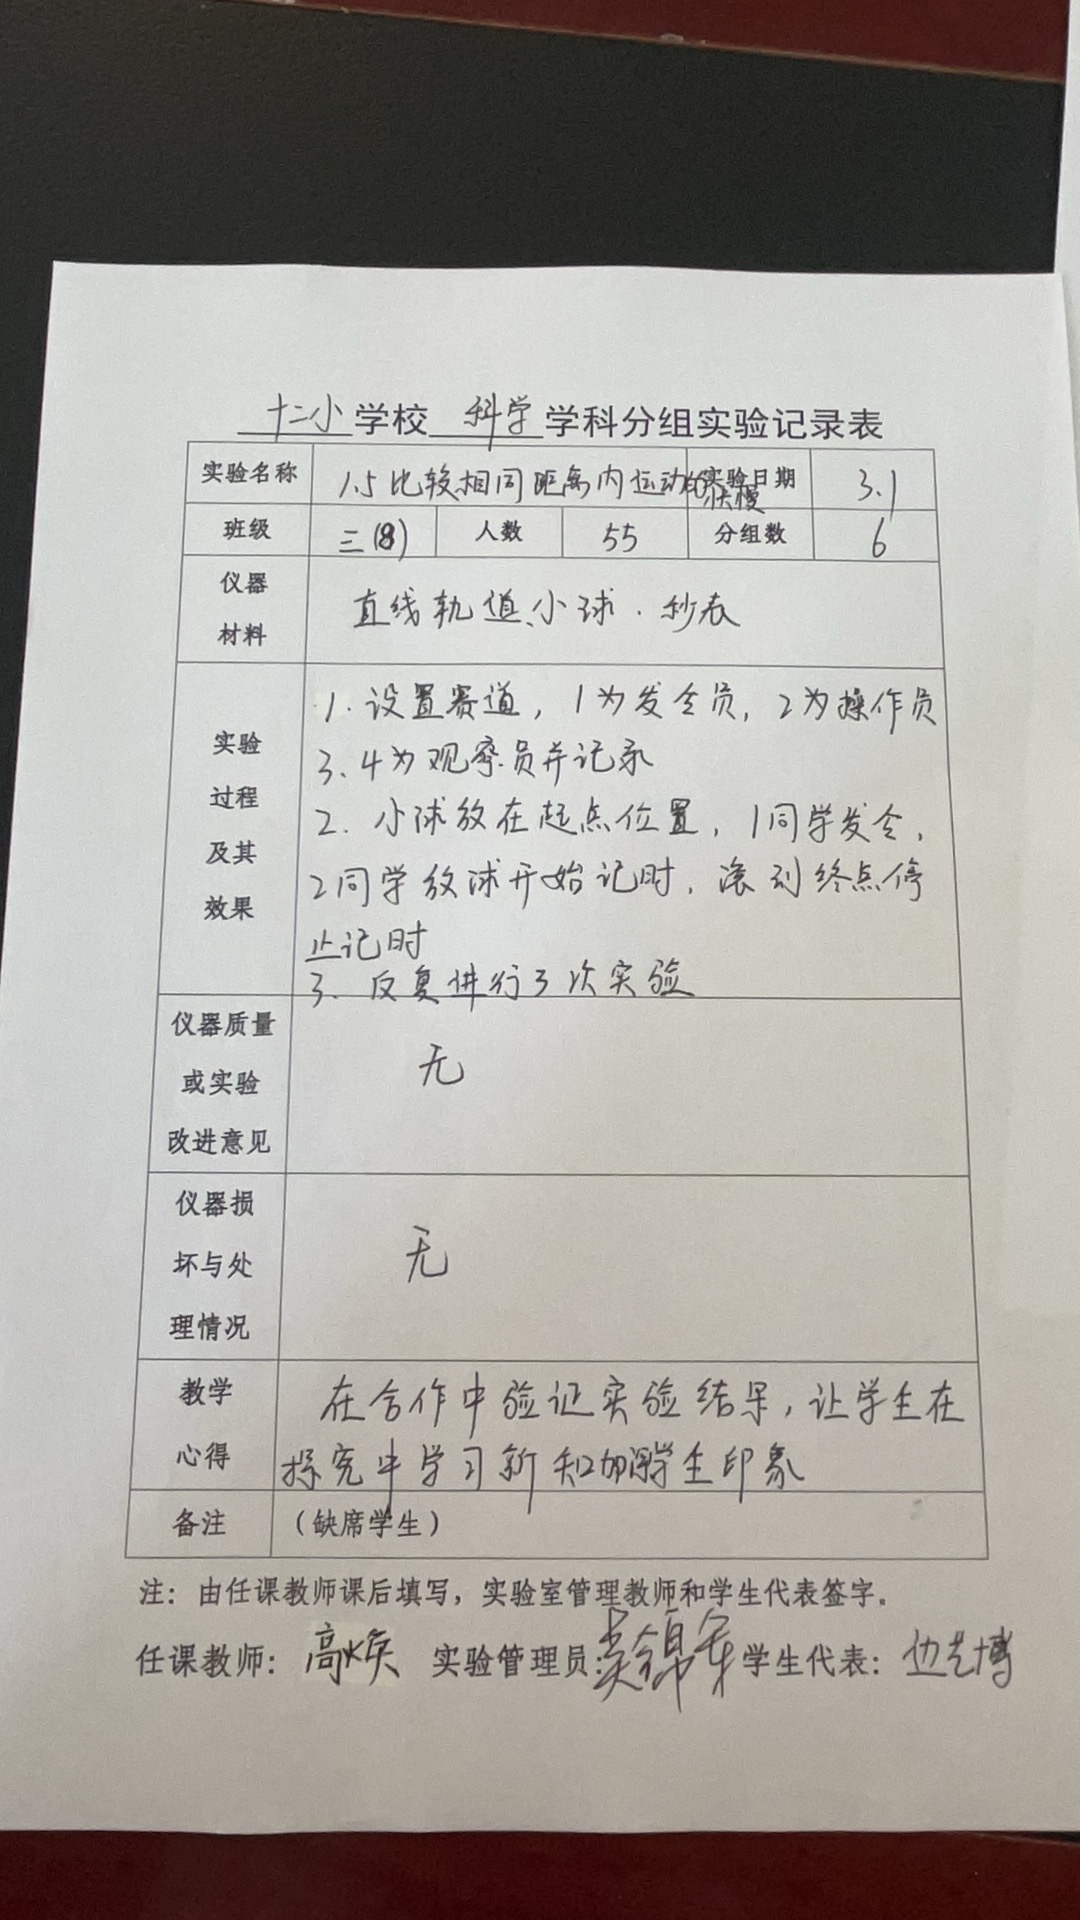 十二小学校 科学 学科分组实验记录表
实验名称 1.5 比较相同距离内运动的快慢 实验日期 3.1
班级 三(8) 人数 55 分组数 6
仪器
材料
直线轨道、小球.秒表
实验
过程
及其
效果
1.设置赛道，1为发令员，2为操作员
3、4为观察员并记录
2.小球放在起点位置，1同学发令，
2同学放球开始记时，滚到终点停
止记时
3.反复进行3次实验
仪器质量
或实验
改进意见
无
仪器损
坏与处
理情况
无
教学
心得
在合作中验证实验结果，让学生在
探究中学习新知加深学生印象
备注 （缺席学生）
注：由任课教师课后填写，实验室管理教师和学生代表签字。
任课教师：高焕 实验管理员： 学生代表：